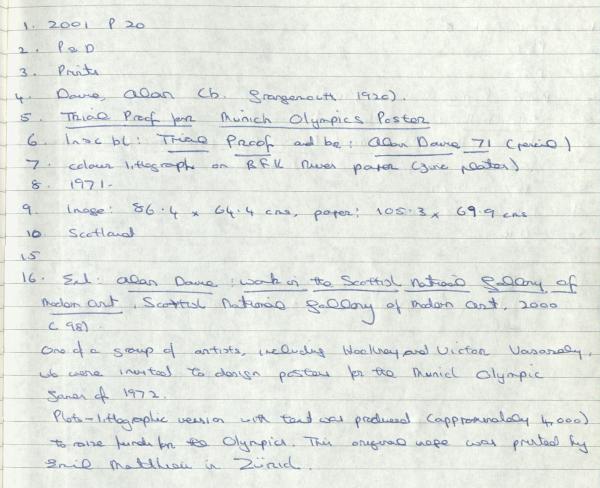 1. 2001 P 20
2. P & D
3. Prints
4. Davie, Alan (b. Grangemouth 1920).
5. Trial Proof for Munich Olympics Poster
6. Insc bl: Trial Proof and br: Alan Davie 71 (pencil)
7. colour lithograph on B.F.K Rives paper (zinc plates)
8. 1971.
9. Image: 86.4 x 64.4 cms, paper: 105.3 x 69.9 cms
10 Scotland
15
16. Exl: Alan Davie: work in the Scottish National Gallery of
Modern Art, Scottish National Gallery of Modern Art, 2000
(98)
One of a group of artists, including Hockney and Victor Vasarely,
who were invited to design posters for the Munich Olympic
Games of 1972.
Photo-lithographic version with text was produced (approximately 4,000)
to raise funds for the Olympics. This original image was printed by
Emil Matthieu in Zürich.